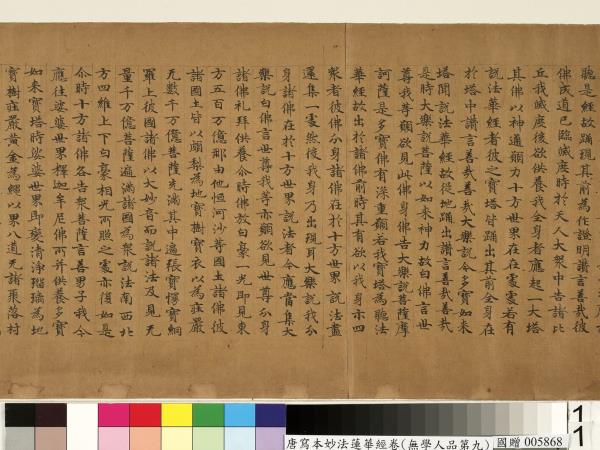 聽是經故踊現其前為作證明讚言善哉彼
佛成道已臨滅度時於天人大眾中告諸比
丘我滅度後欲供養我全身者應起一大塔
其佛以神通願力十方世界在在處處若有
說法華經者彼之寶塔皆踊出其前全身在
於塔中讚言善哉善哉大樂說今多寶如來
塔聞說法華經故從地踊出讚言善哉善哉
是時大樂說菩薩以如來神力故白佛言世
尊我等願欲見此佛身佛告大樂說菩薩摩
訶薩是多寶佛有深重願若我寶塔為聽法
華經故出於諸佛前時其有欲以我身示四
眾者彼佛分身諸佛在於十方世界說法盡
還集一處然後我身乃出現耳大樂說我分
身諸佛在於十方世界說法者今應當集大
樂說白佛言世尊我等亦願欲見世尊分身
諸佛礼拜供養尒時佛放白豪一光即見東
方五百万億那由他恒河沙等國土諸佛彼
諸國土皆以頗梨為地寶樹寶衣以為莊嚴
无數千万億菩薩充滿其中遍張寶幔寶網
羅上彼國諸佛以大妙音而說諸法及見无
量千万億菩薩遍滿諸國為眾說法南西北
方四維上下白豪相光所照之處亦復如是
尒時十方諸佛各告眾菩薩言善男子我今
應往娑婆世界釋迦牟尼佛所并供養多寶
如來寶塔時娑婆世界即變清淨瑠璃為地
寶樹莊嚴黃金為繩以界八道无諸聚落村
唐寫本妙法蓮華經卷(無學人品第九) 國贈 005868
11